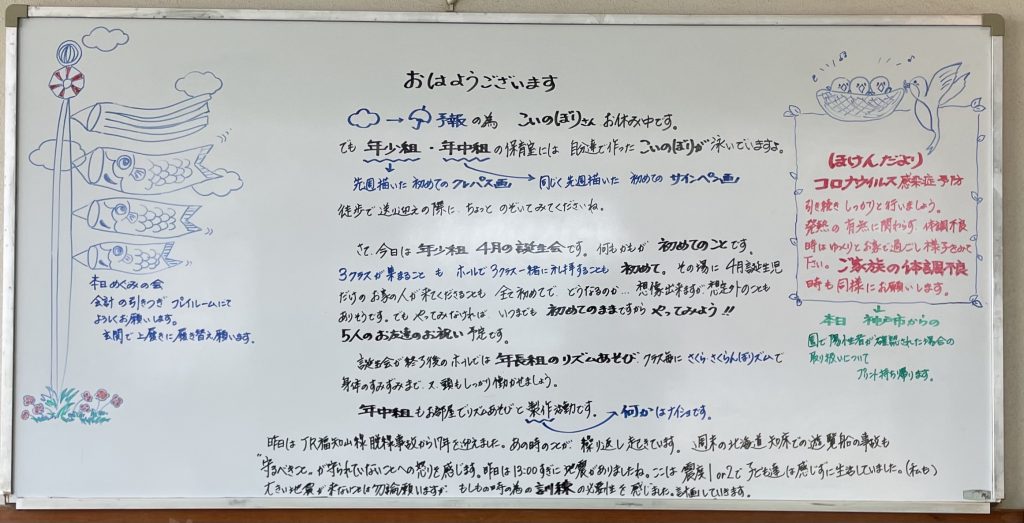 おはようございます
→ 予報の為 こいのぼりさん お休み中です。
でも 年少組・年中組の保育室には 自分達で作った こいのぼりが 泳いでいますよ。
先週描いた 初めてのクレパス画 → 同じく先週描いた 初めての サインペン画
徒歩で送り迎えの際に、ちょっと のぞいてみてくださいね。
さて、今日は 年少組 4月の誕生会です。何もかもが 初めてのことです。
3クラスが集まること も ホールで3クラス一緒に礼拝することも 初めて。その場に 4月誕生児
だけのお家の人が来てくださることも 全て初めてで、どうなるのか… 想像出来ますが想定外のことも
ありそうです。でも やってみなければ いつまでも 初めてのままですから やってみよう!!
5人のお友達のお祝い 予定です。
誕生会が終了後のホールでは 年長組のリズムあそび、クラス毎に さくら・さくらんぼリズムで
身体のすみずみまで、又、頭もしっかり働かせましょう。
年中組もお部屋でリズムあそびと 製作活動です。→ 何かはナイショです。
昨日は JR福知山線脱線事故から17年を迎えました。あの時のことが 繰り返し起きています。 週末の北海道知床での遊覧船の事故も
"守るべきこと。が守られていないことへの怒りを感じます。昨日は13:00すぎに地震がありましたね。ここは 震度1or2で 子ども達は感じずに生活していました。(私も)
大きい地震が来ないことは勿論願いますが もしもの時の為の訓練の必要性を感じました。計画していきます。
本日 めぐみの会
会計の引きつぎ プレイルームにて
よろしくお願いします。
玄関で上履きに履き替え願います。
ほけんだより
コロナウイルス感染症予防
引き続き しっかりと行いましょう。
発熱の有無に関わらず、体調不良
時はゆっくりとお家で過ごし様子をみて
下さい。ご家族の体調不良
時も同様にお願いします。
本日 神戸市からの
園で陽性者が確認された場合の
取り扱いについて
プリント持ち帰ります。